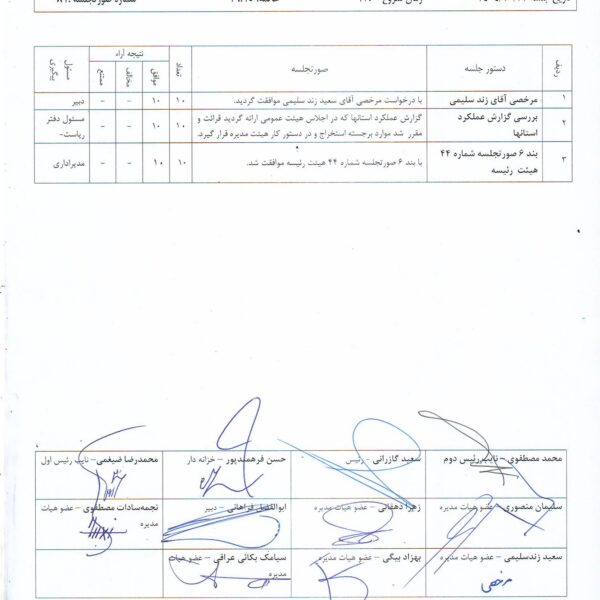 ردیف
دستور جلسه
صورتجلسه
تعداد
نتیجه آراء
موافق
مخالف
ممتنع
مسئول پیگیری
۱
مرخصی آقای زند سلیمی
با درخواست مرخصی آقای سعید زند سلیمی موافقت گردید.
۱۰
۱۰
–
–
دبیر
۲
بررسی گزارش عملکرد
استانها
گزارش عملکرد استانها که در اجلاس هیئت عمومی ارائه گردید قرائت و
مقرر شد موارد برجسته استخراج و در دستور کار هیئت مدیره قرار گیرد.
۱۰
۱۰
–
–
مسئول دفتر
ریاست-
۳
بند ۶ صورتجلسه شماره ۴۴
هیئت رئیسه
با بند ۶ صورتجلسه شماره ۴۴ هیئت رئیسه موافقت شد.
۱۰
۱۰
–
–
مدیراداری
محمد مصطفوی – نایب رئیس دوم
سعید گازرانی – رئیس
حسن فرهمندپور – خزانه دار
محمدرضا ضیغمی – نایب رئیس اول
سلیمان منصوری – عضو هیات مدیره
زهرا دهقانی – عضو هیات مدیره
ابوالفضل فراهانی – دبیر
نجمه‌سادات مصطفوی – عضو هیات
مدیره
سعید زندسلیمی – عضو هیات مدیره
بهزاد بیگی – عضو هیات مدیره
سیامک بکائی عراقی – عضو هیات
مدیره
مرخصی